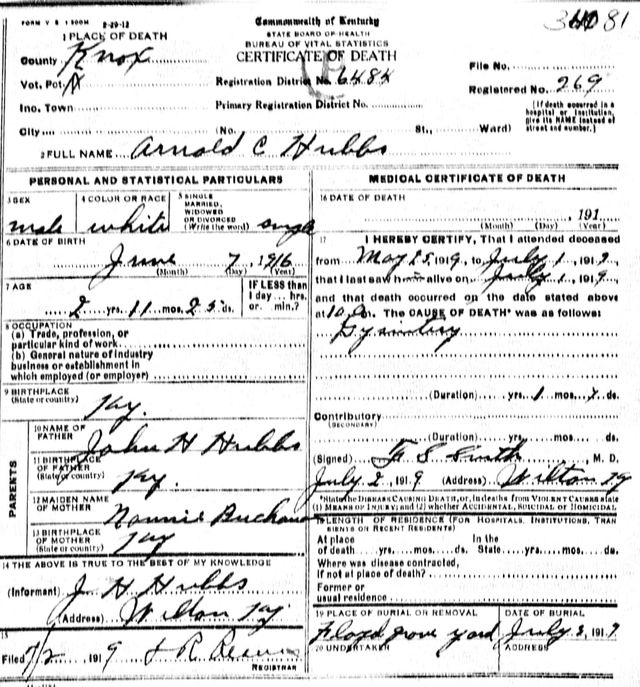 FORM V S 1 500M 2-29-12
Commonwealth of Kentucky
STATE BOARD OF HEALTH
BUREAU OF VITAL STATISTICS
CERTIFICATE OF DEATH
81
1 PLACE OF DEATH
County Knox
Vot. Pct.
Inc. Town
City (No. St., Ward)
Registration District No. 6484
Primary Registration District No.
File No.
Registered No. 269
(If death occurred in a
hospital or institution,
give its NAME instead of
street and number.)
2 FULL NAME Arnold C Hubbs
PERSONAL AND STATISTICAL PARTICULARS
3 SEX
male
4 COLOR OR RACE
white
5 SINGLE
MARRIED,
WIDOWED
OR DIVORCED
(Write the word) single
6 DATE OF BIRTH
June 7, 1916
(Month) (Day) (Year)
7 AGE
2 yrs. 11 mos. 25 ds.
IF LESS than
1 day... hrs.
or min.?
8 OCCUPATION
(a) Trade, profession, or
particular kind of work
(b) General nature of industry
business or establishment in
which employed (or employer)
9 BIRTHPLACE
(State or country) Ky.
PARENTS
10 NAME OF
FATHER John H Hubbs
11 BIRTHPLACE
OF FATHER
(State or country) Ky.
12 MAIDEN NAME
OF MOTHER Nannie
13 BIRTHPLACE
OF MOTHER
(State or country) Ky
14 THE ABOVE IS TRUE TO THE BEST OF MY KNOWLEDGE
(Informant) J H Hubbs
(Address) Wilton Ky
15
Filed 7/2 1919
REGISTRAR
MEDICAL CERTIFICATE OF DEATH
16 DATE OF DEATH
, 191
(Month) (Day) (Year)
17 I HEREBY CERTIFY, That I attended deceased
from May 25, 1919, to July 1, 1919
that I last saw him alive on July 1, 1919
and that death occurred on the date stated above
at 10 m. The CAUSE OF DEATH* was as follows:
(Duration) yrs. 1 mos. 7 ds.
Contributory
(SECONDARY)
(Duration) yrs. mos. ds.
(Signed) Smith, M. D.
July 2, 1919 (Address) Wilton Ky
*State the DISEASE CAUSING DEATH, or, in deaths from VIOLENT CAUSES state
(1) MEANS OF INJURY; and (2) whether ACCIDENTAL, SUICIDAL OR HOMICIDAL
18 LENGTH OF RESIDENCE (FOR HOSPITALS, INSTITUTIONS, TRAN
SIENTS OR RECENT RESIDENTS)
At place In the
of death yrs. mos. ds. State yrs. mos. ds.
Where was disease contracted,
if not at place of death?
Former or
usual residence
19 PLACE OF BURIAL OR REMOVAL
yard
DATE OF BURIAL
July 3, 1919
20 UNDERTAKER
ADDRESS